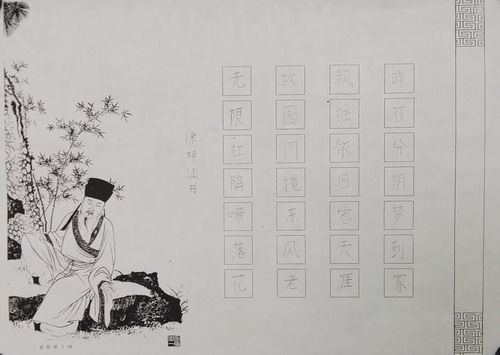 昨夜分明梦到家
飘依旧客天涯
故园门掩东风老
无限杜鹃啼落花
徐梓涵书